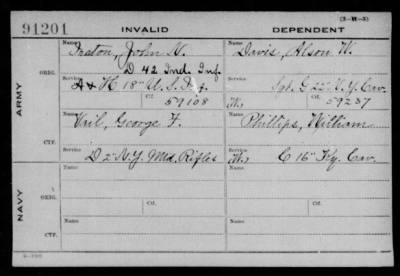 (3-M-3)
91201 INVALID DEPENDENT
Name Name
Preston, John H. Davis, Alson W.
D 42 Ind. Inf.
ARMY
ORIG. Service Service
A & H 18" U.S. Inf. Sgt. G 22" N.Y. Cav.
Ctf. 59108 (W.) Ctf. 59237
Name Name
George F. Phillips, William
CTF. Service Service
D 2" N.Y. Mtd. Rifles (W.) C 16" Ky. Cav.
NAVY
Name Name
ORIG. Ctf. Ctf.
Name Name
CTF.